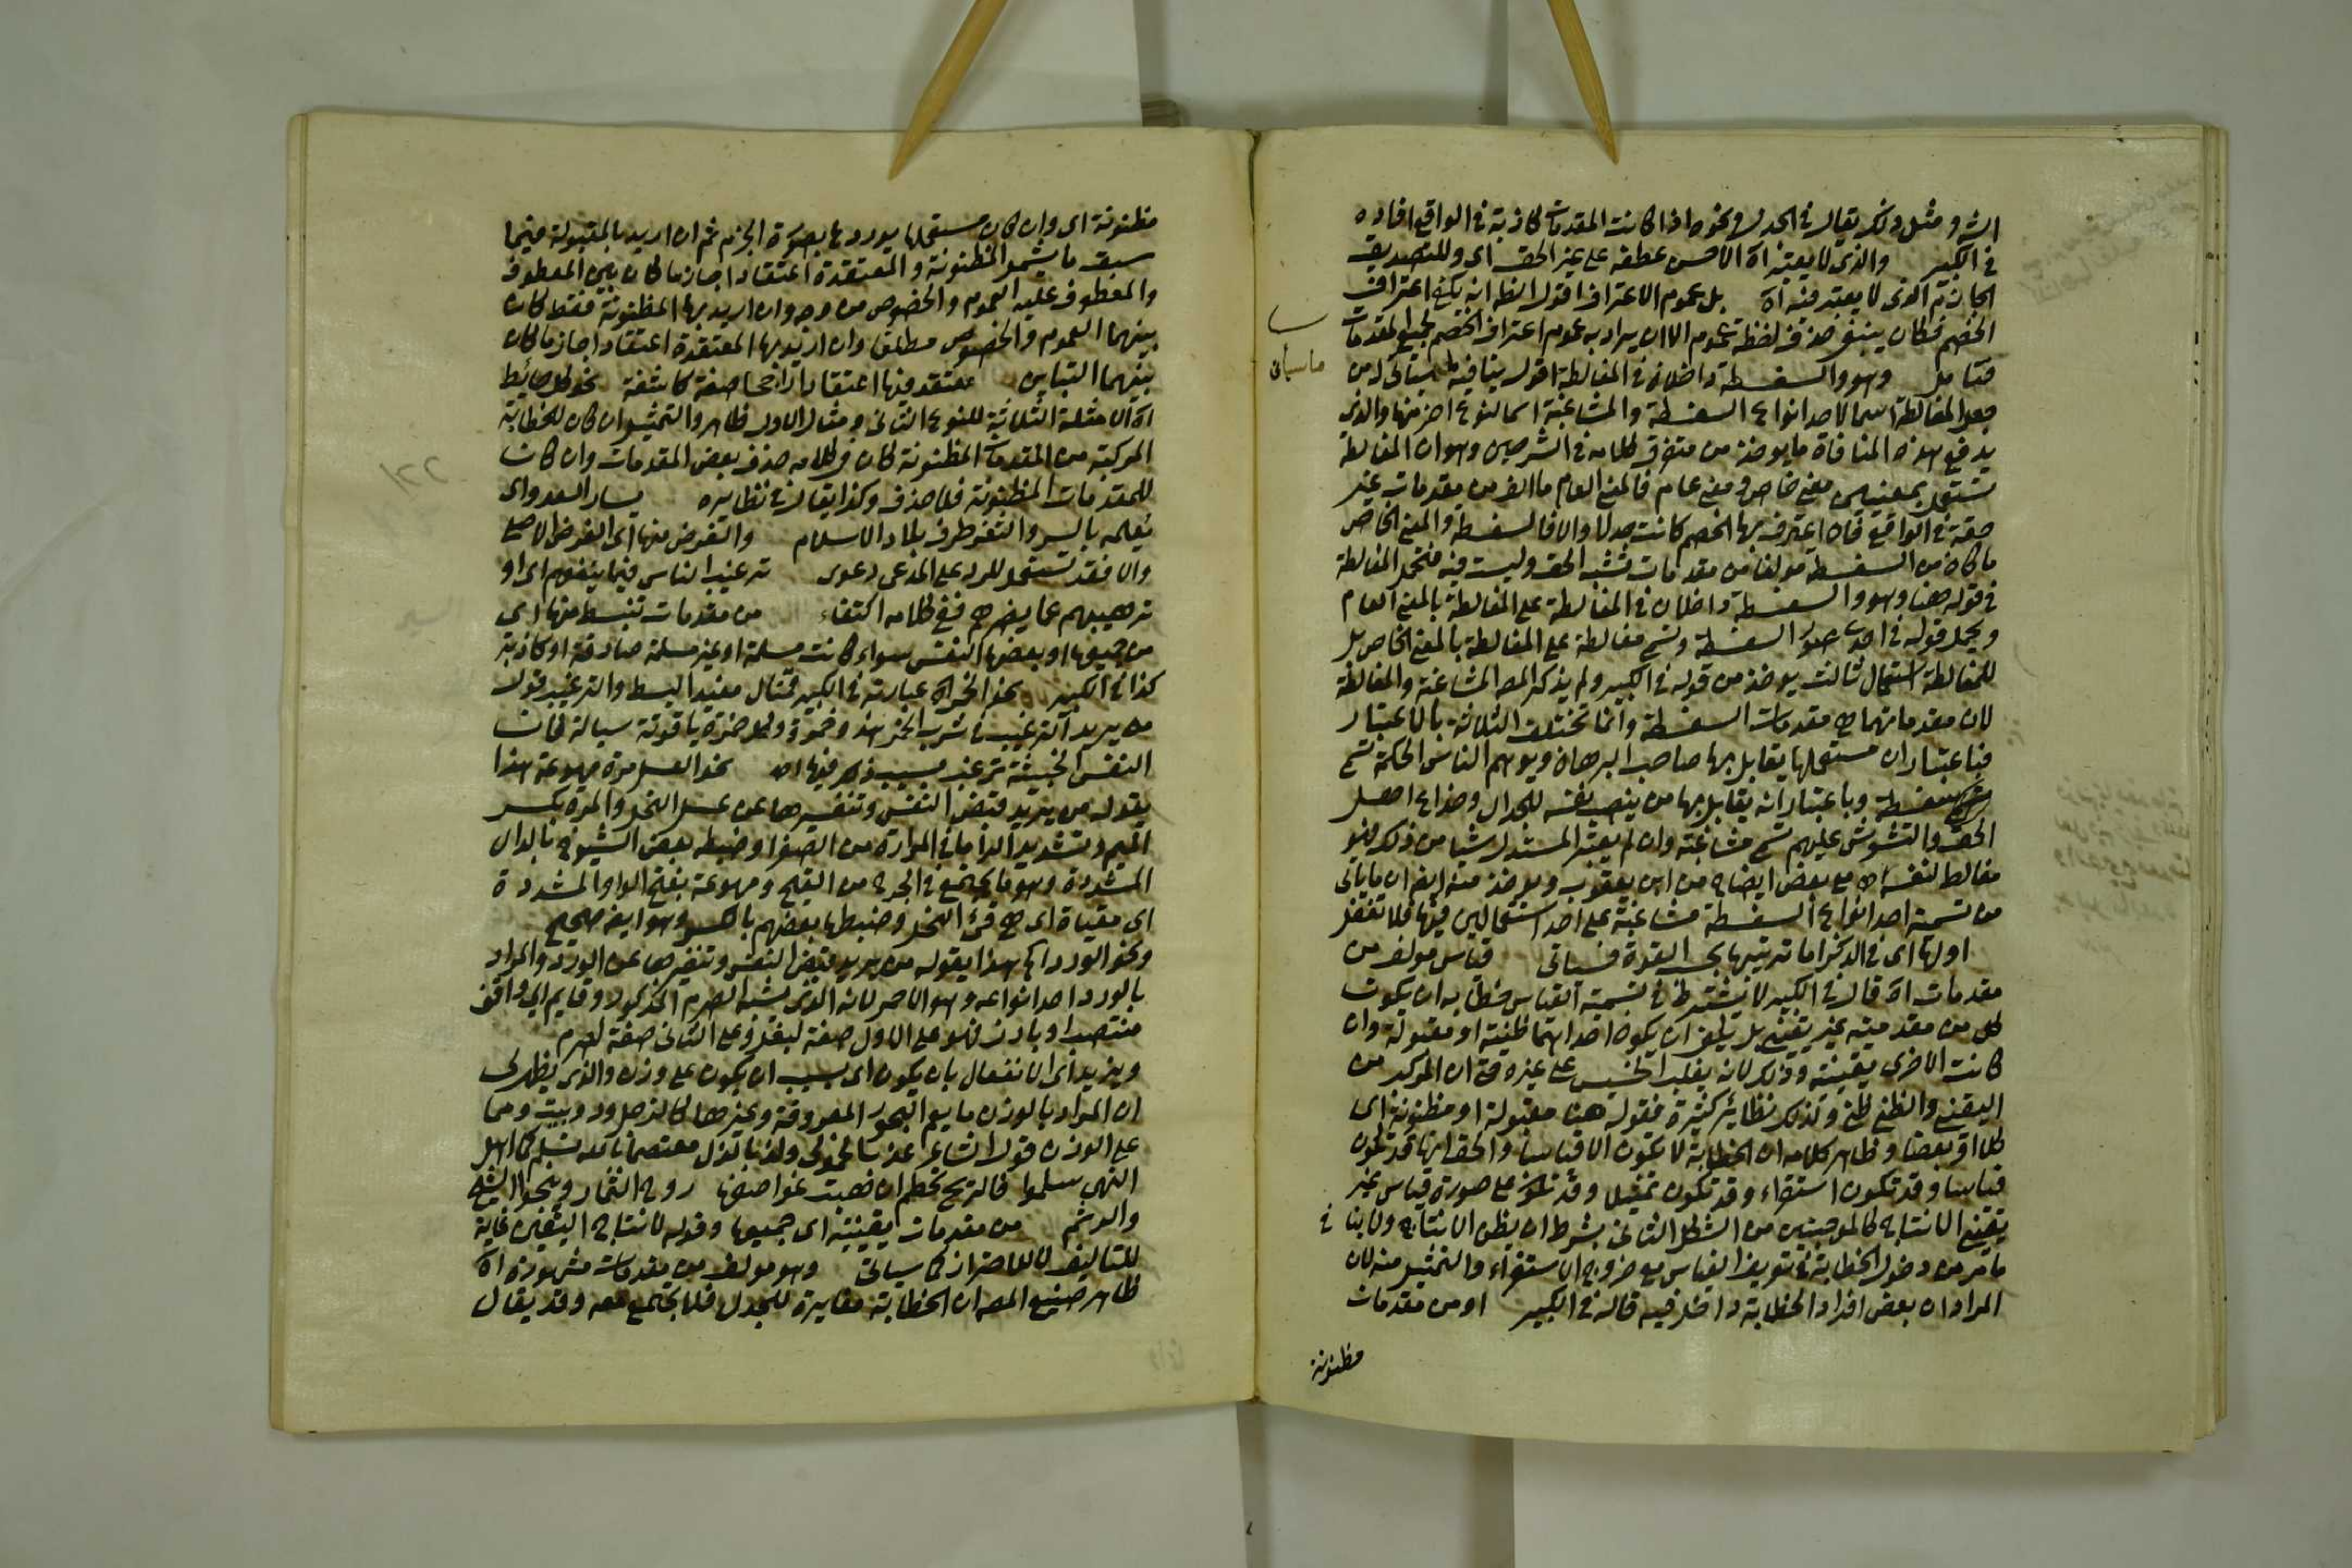 الشر ومثل ذلك يقال في الجدل ونحوه اذا كانت المقدمات كاذبة في الواقع افاده
في الكبير والذي لا يعتبر اه الاحسن عطفه على غير الحق اى وللتصديق
الجازم الذي لا يعتبر فيه اه بل عموم الاعتراف اقول الظ انه يكفي اعتراف
الخصم فكان ينبغي حذف لفظة عموم الا ان يراد به عموم اعتراف الخصم لجميع المقدمات
فتامل وهو والسفسطة داخلان في المغالطة اقول ينافيه ما سيأتى له من
جعل المغالطة اسما لاحد انواع السفسطة والمشاغبة اسما لنوع اخر منها والذي
يدفع هذه المنافاة ما يوخذ من متفرق كلامه في الشرحين وهو ان المغالطة
تستعمل بمعنيين معنى خاص ومعنى عام فالمعنى العام ما الف من مقدمات غير
حقة في الواقع فان اعترف بها الخصم كانت جدلا والا فالسفسطة والمعنى الخاص
ما كان من السفسطة مولفا من مقدمات تشبه الحق وليست فيه فتحمل المغالطة
في قوله هنا وهو والسفسطة داخلان في المغالطة على المغالطة بالمعنى العام
ويحمل قوله في السفسطة وتسمى مغالطة على المغالطة بالمعنى الخاص بل
للمغالطة استعمال ثالث يوخذ من قوله في الكبير ولم يذكر المصـ المشاغبة والمغالطة
لان مقدماتهما هي مقدمات السفسطة وانما تختلف الثلاثة بالاعتبار
فباعتبار ان مستعملها يقابل بها صاحب البرهان ويوهم الناس الحكمة تسمى
سفسطة وباعتبار انه يقابل بها من ينصب نفسه للجدال وخداع اهل
الحق والتشويش عليهم تسمى مشاغبة وان لم يعتبر المستدل شيا من ذلك فهو
مغالط لنفسه اه مع بعض ايضاح من ابن يعقوب ويوخذ منه ايضا ان ما ياتى
من تسمية احد انواع السفسطة مشاغبة على احد استعمالين فيها فلا تغفل
اولها اى في الذكر اما ترتيبها بحسب القوة فسياتى قياس مولف من
مقدمات اه قال في الكبير لا يشترط في تسمية القياس خطابه ان يكون
كل من مقدمتيه غير يقينى بل يكفى ان يكون احداهما ظنية او مقبولة وان
كانت الاخرى يقينية وذلك لانه يغلب الخسيس على غيره حتى ان المركب من
اليقينى والظنى ظنى ولذلك نظائر كثيرة فقوله هنا مقبولة او مظنونة اى
كلا او بعضا وظاهر كلامه ان الخطابة لا تكون الا قياسا والحق انها قد تكون
قياسا وقد تكون استقراء وقد تكون تمثيلا وقد تكون على صورة قياس غير
يقينى الانتاج كالموجبتين من الشكل الثانى بشرط ان يظن الانتاج ولا ينافى
ما مر من دخول الخطابة في تعريف القياس مع خروج الاستقراء والتمثيل منه لان
المراد ان بعض افراد الخطابة داخل فيه قاله في الكبير او من مقدمات
مظنونة
ما سيأتى
مظنونة اى وان كان مستعملها يوردها بصورة الجزم ثم ان اريد بالمقبولة فيما
سبق ما يشمل المظنونة والمعتقدة اعتقادا جازما كان بين المعطوف
والمعطوف عليه العموم والخصوص من وجه وان اريد بها المظنونة فقط كان
بينهما العموم والخصوص مطلقا وان اريد بها المعتقدة اعتقادا جازما كان
بينهما التباين معتقد فيها اعتقادا راجحا صفة كاشفة نحو كل حائط
اه الامثلة الثلاثة للنوع الثانى ومثال الاول ظاهر والتمثيل ان كان للخطابة
المركبة من المقدمات المظنونة كان في كلامه حذف بعض المقدمات وان كان
للمقدمات المظنونة فلا حذف وكذا يقال في نظايره يسار العدو اى
يعلمه بالسر والثغر طرف بلاد الاسلام والغرض منها اى الغرض الاصلى
والا فقد تستعمل للرد على المدعى دعوى ترغيب الناس فيما ينفعهم اى او
ترهيبهم عما يضرهم ففى كلامه اكتفاء من مقدمات تنبسط منها اى
من جميعها او بعضها النفس سواء كانت مسلمة او غير مسلمة صادقة او كاذبة
كذا في الكبير نحو الخمر اه عبارته في الكبير فمثال مفيد البسط والترغيب قول
من يريد الترغيب في شرب الخمر هذه خمرة وكل خمرة ياقوتة سيالة فان
النفس الخبيثة ترغب بسبب ذلك فيها اه نحو العسل مرة مهوعة هذا
يقوله من يريد قبض النفس وتنفيرها عن عسل النحل والمرة بكسر
الميم وتشديد الراء ما في المرارة من الصفرا وضبطه بعض الشيوخ بالدال
المشددة وهو ما يجتمع في الجرح من القيح ومهوعة بفتح الواو المشددة
اى مقياة اى هى قئ النحل وضبطها بعضهم بالكسر وهو ايضا صحيح
ونحو الورد اه هذا يقوله من يريد قبض النفس وتنفيرها عن الورد والمراد
بالورد احد انواعه وهو الاحمر لانه الذى يشبه الصرم المذكور وقايم اى واقف
منتصبا وبارز فهو على الاول صفة لبغل وعلى الثانى صفة لصرم
ويزيد اى الانفعال بان يكون اى بسبب ان يكون على وزن والذى يظهر لى
ان المراد بالوزن ما يعم البحور المعروفة وغيرها كالزجل ودوبيت ومما
على الوزن قول الشاعر عذبنا خمولى ولذ بالذل معتصما بالله تسلم كما اهل
النهى سلموا فالريح تحطم ان هبت عواصفها روح الثمار وينجو الشيح
والرتم من مقدمات يقينية اى جميعها وقوله لانتاج اليقين غاية
للتاليف لا للاحتراز كما سياتى وهو مولف من مقدمات مشهورة اه
ظاهر صنيع المصـ ان الخطابة مغايرة للجدل فلا تجتمع معه وقد يقال